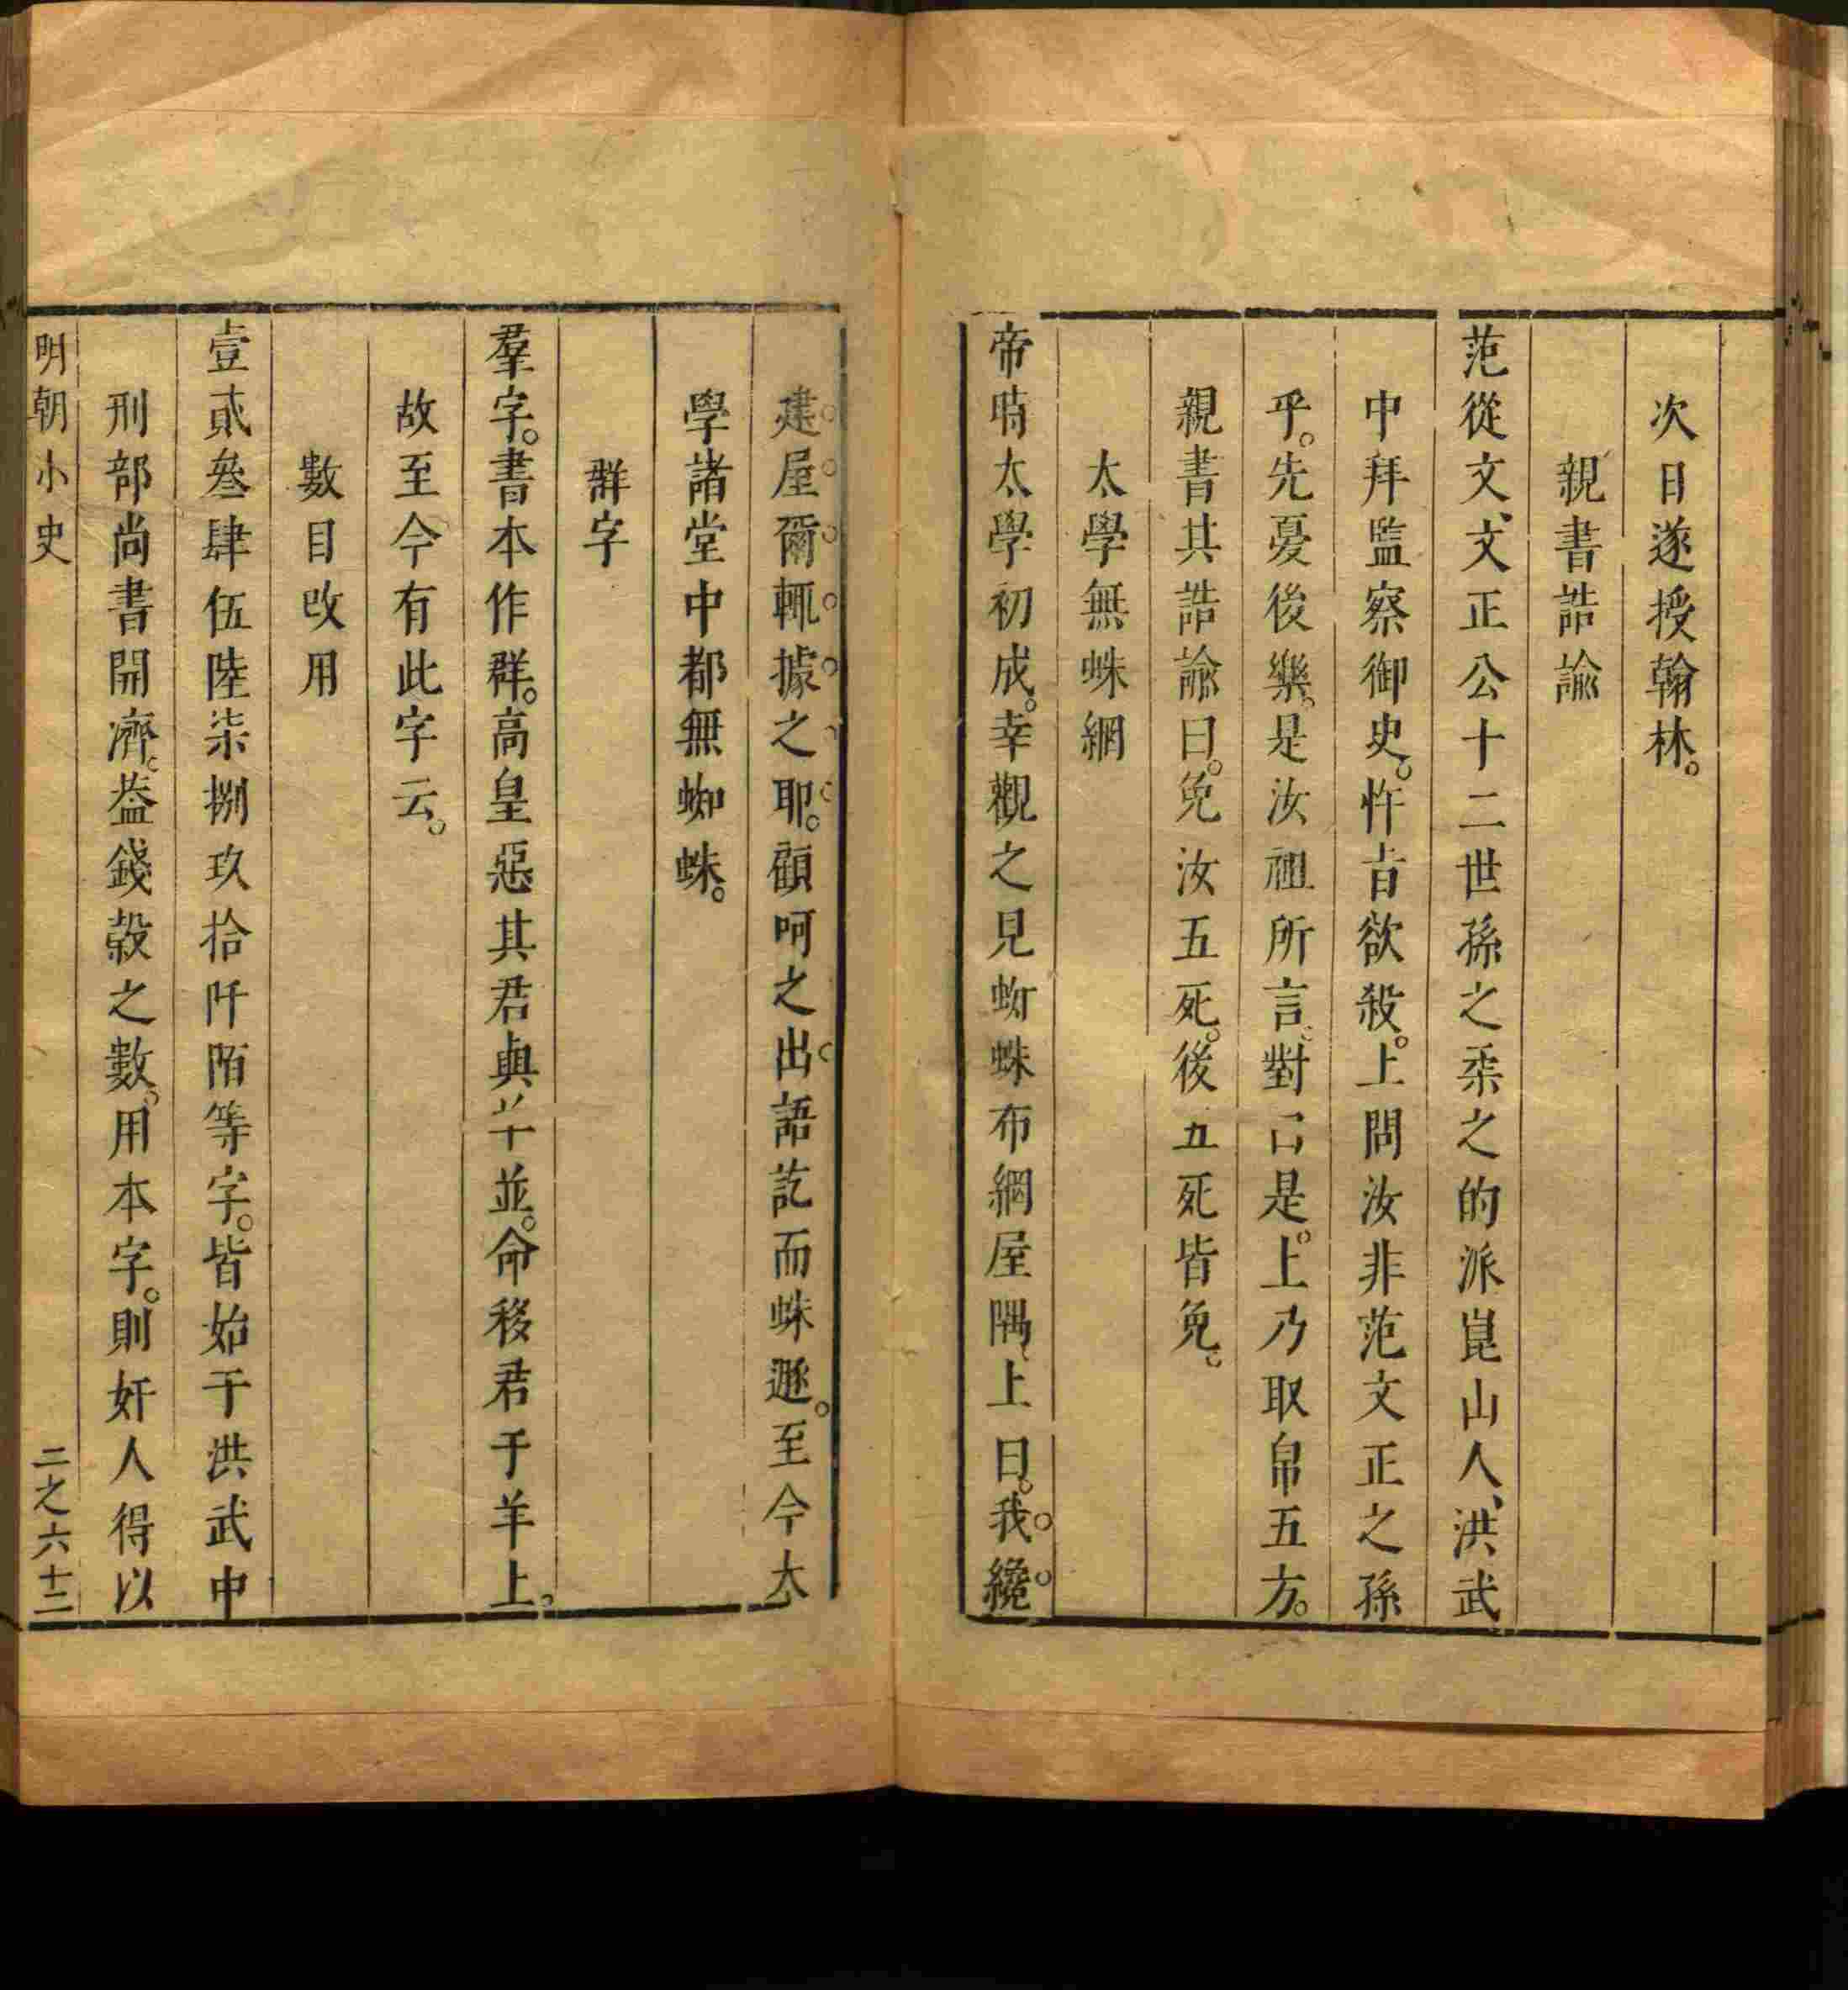 次日遂授翰林。
親書誥諭
范從文、文正公十二世孫之柔之的派崑山人、洪武
中拜監察御史。忤旨欲殺。上問汝非范文正之孫
乎。先憂後樂。是汝祖所言。對曰是。上乃取帛五方。
親書其誥諭曰。免汝五死。後五死皆免。
太學無蛛網
帝時太學初成。幸觀之見蜘蛛布網屋隅、上曰。我纔
建屋爾輒據之耶。顧呵之出語訖而蛛遯。至今太
學諸堂中都無蜘蛛。
群字
羣字。書本作群。高皇惡其君與羊並。命移君于羊上。
故至今有此字云。
數目改用
壹貳叄肆伍陸柒捌玖拾阡陌等字。皆始于洪武中
刑部尚書開濟。葢錢穀之數、用本字。則奸人得以
明朝小史
二之六十三